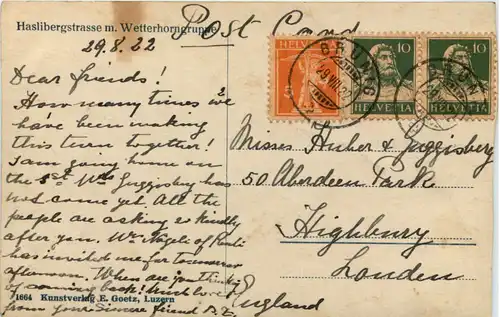 Haslibergstrasse m. Wetterhorngruppe
Post Card
29.8.22
Dear friends!
How many times we
have been making
this turn together!
I am going home on
the 3st. Mr Juggisberg has
not come yet. All the
people are asking so kindly
after you. Mr. Nägeli of
has invited me for tomorrow
afternoon. When are you thinking
of coming back! Much love
from your Sincere friend
1664 Kunstverlag E. Goetz, Luzern
HELVETIA
5
BRÜNIG
29.VIII.22
10
HELVETIA
10
HELVETIA
Misses Huber & Juggisberg
50 Aberdeen Park
Highbury
London
England